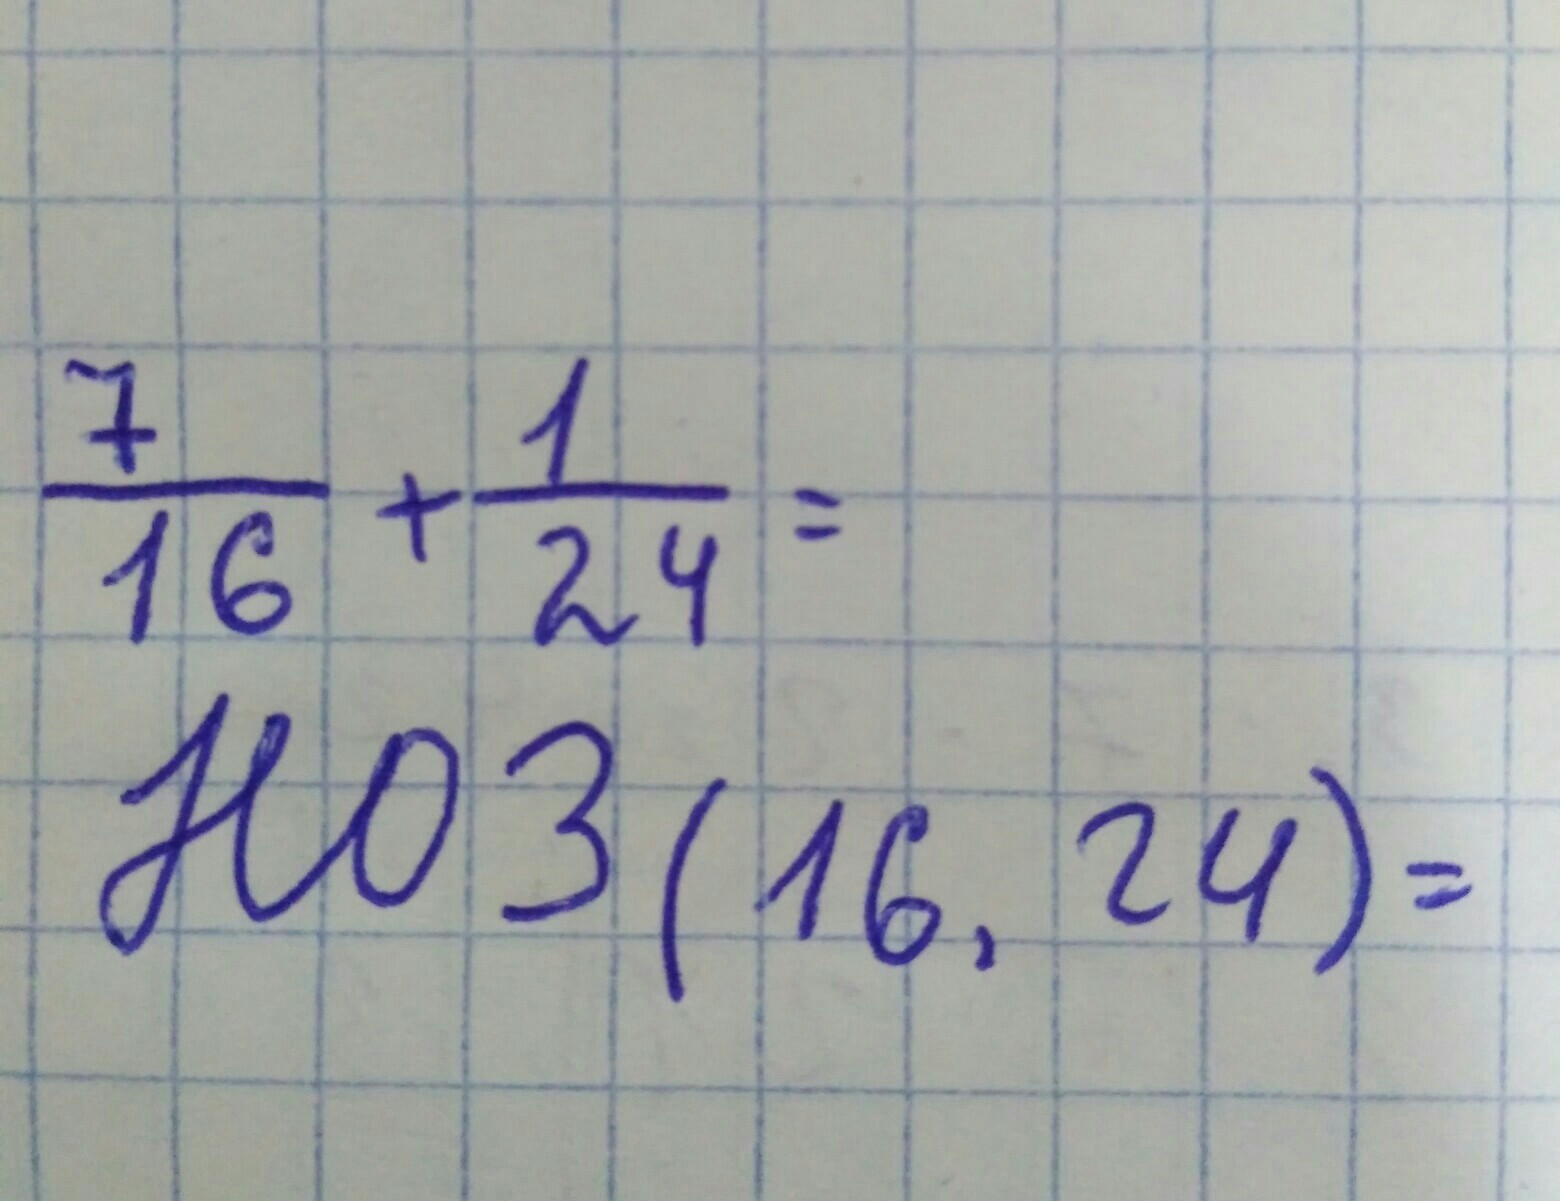 7/16 + 1/24 =
НОЗ (16, 24) =